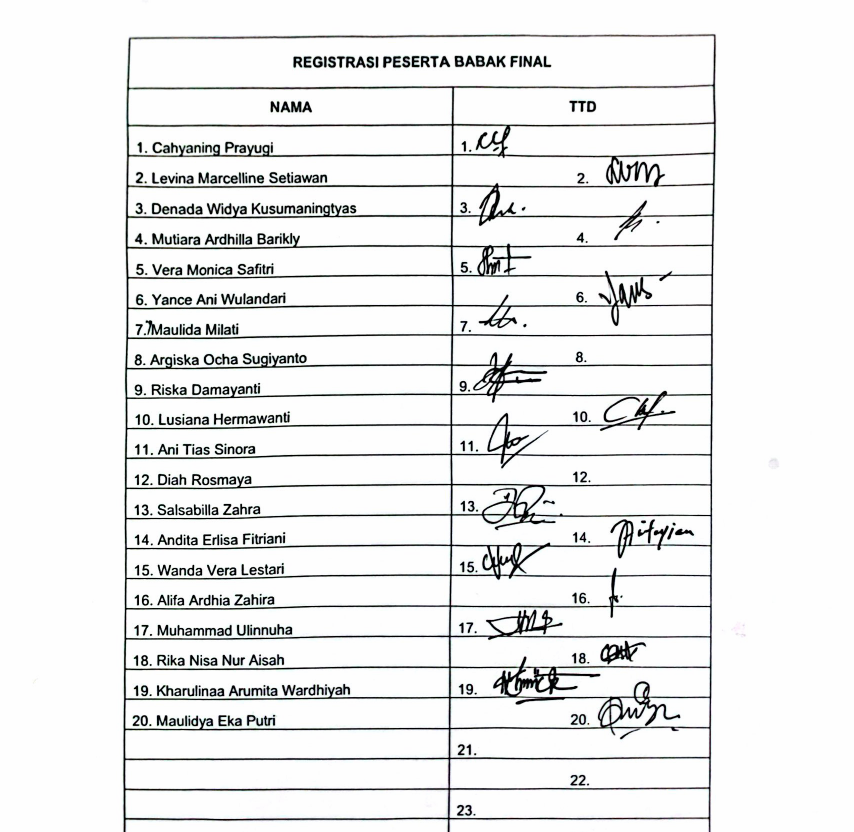 REGISTRASI PESERTA BABAK FINAL
NAMA TTD
1. Cahyaning Prayugi 1.
2. Levina Marcelline Setiawan 2.
3. Denada Widya Kusumaningtyas 3.
4. Mutiara Ardhilla Barikly 4.
5. Vera Monica Safitri 5.
6. Yance Ani Wulandari 6.
7. Maulida Milati 7.
8. Argiska Ocha Sugiyanto 8.
9. Riska Damayanti 9.
10. Lusiana Hermawanti 10.
11. Ani Tias Sinora 11.
12. Diah Rosmaya 12.
13. Salsabilla Zahra 13.
14. Andita Erlisa Fitriani 14.
15. Wanda Vera Lestari 15.
16. Alifa Ardhia Zahira 16.
17. Muhammad Ulinnuha 17.
18. Rika Nisa Nur Aisah 18.
19. Kharulinaa Arumita Wardhiyah 19.
20. Maulidya Eka Putri 20.
21.
22.
23.